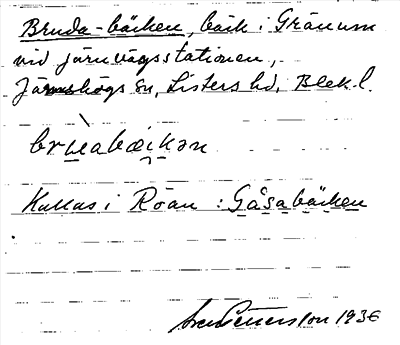 Bruda-bäcken, bäck i Gränum
vid järnvägsstationen,
Jämshögs sn, Listers hd, Blek. l.
brùabæikən
Kallas i Röan : Gåsabäcken
Sven Petersson 1936